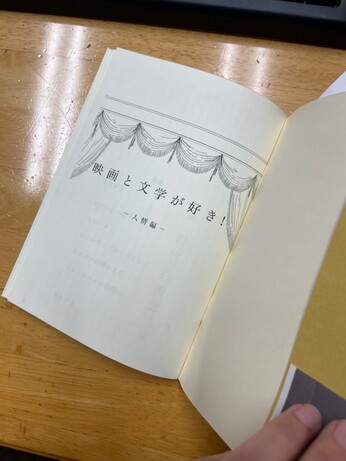 映画と文学が好き!
–人情編–